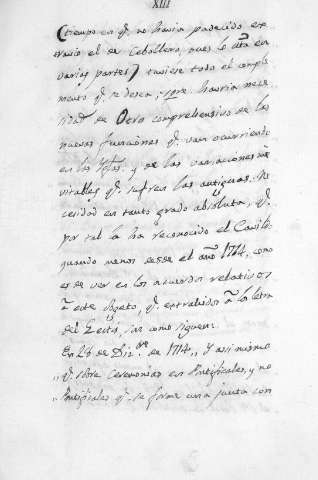 XIII
(tiempo en q.e no havia padecido ex-
travio el de Caballero, pues lo cita en
varias partes) tuviese todo el comple
mento q.e se desea, siempre havria nece
sidad de Otro comprehensivo de las
nuevas funciones q.e van ocurriendo
en los y de las variaciones in
evitables q.e sufren las antiguas. Ne
cesidad en tanto grado absoluta, q.e
por tal la ha reconocido el Cavildo
quando menos desde el año 1714, como
es de ver en los acuerdos relativos
a este objeto, q.e extrahidos a la letra
del son como siguen:
En 28 de Dizbre de 1714,, Y asi mismo
,, q.e sobre Ceremonias en Pontificales, y no
,, Pontificales q.e se forme una junta con